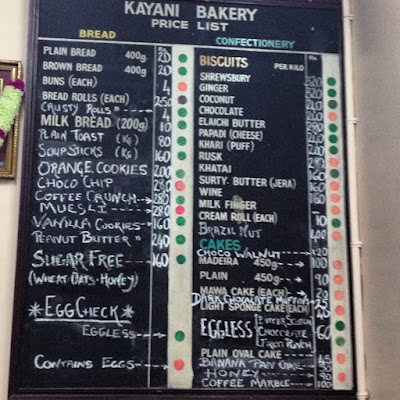 KAYANI BAKERY
PRICE LIST
BREAD
Rs.
PLAIN BREAD 400g. 20
BROWN BREAD 400g 20
BUNS (EACH) 4
BREAD ROLLS (EACH)
CRUSTY ROLLS " 4
MILK BREAD (200g) 10
PLAIN TOAST (KG) 80
SOUPSTICKS (KG) 160
ORANGE COOKIES 200
CHOCO CHIP
COFFEE CRUNCH 280
MUESLI 280
VANILLA COOKIES 160
PEANUT BUTTER " 240
SUGAR FREE 160
(WHEAT-OATS-HONEY)
*EGG CHECK*
EGGLESS
CONTAINS EGGS
CONFECTIONERY
Rs.
BISCUITS PER KILO
SHREWSBURY
GINGER
COCONUT
CHOCOLATE
ELAICHI BUTTER
PAPADI (CHEESE)
KHARI (PUFF)
RUSK
KHATAI
SURTY BUTTER (JERA)
WINE
MILK FINGER
CREAM ROLL (EACH) 10
BRAZIL NUT
CAKES
CHOCO WALNUT 120
MADEIRA 450g 100
PLAIN 450g 90
MAWA CAKE (EACH)
DARK CHOCOLATE MUFFINS 25
LIGHT SPONGE CAKE (EACH)
EGGLESS BUTTER SCOTCH
CHOCOLATE 60
FRUIT PUNCH
PLAIN OVAL CAKE
BANANA PAN CAKE
HONEY 90
COFFEE MARBLE 100